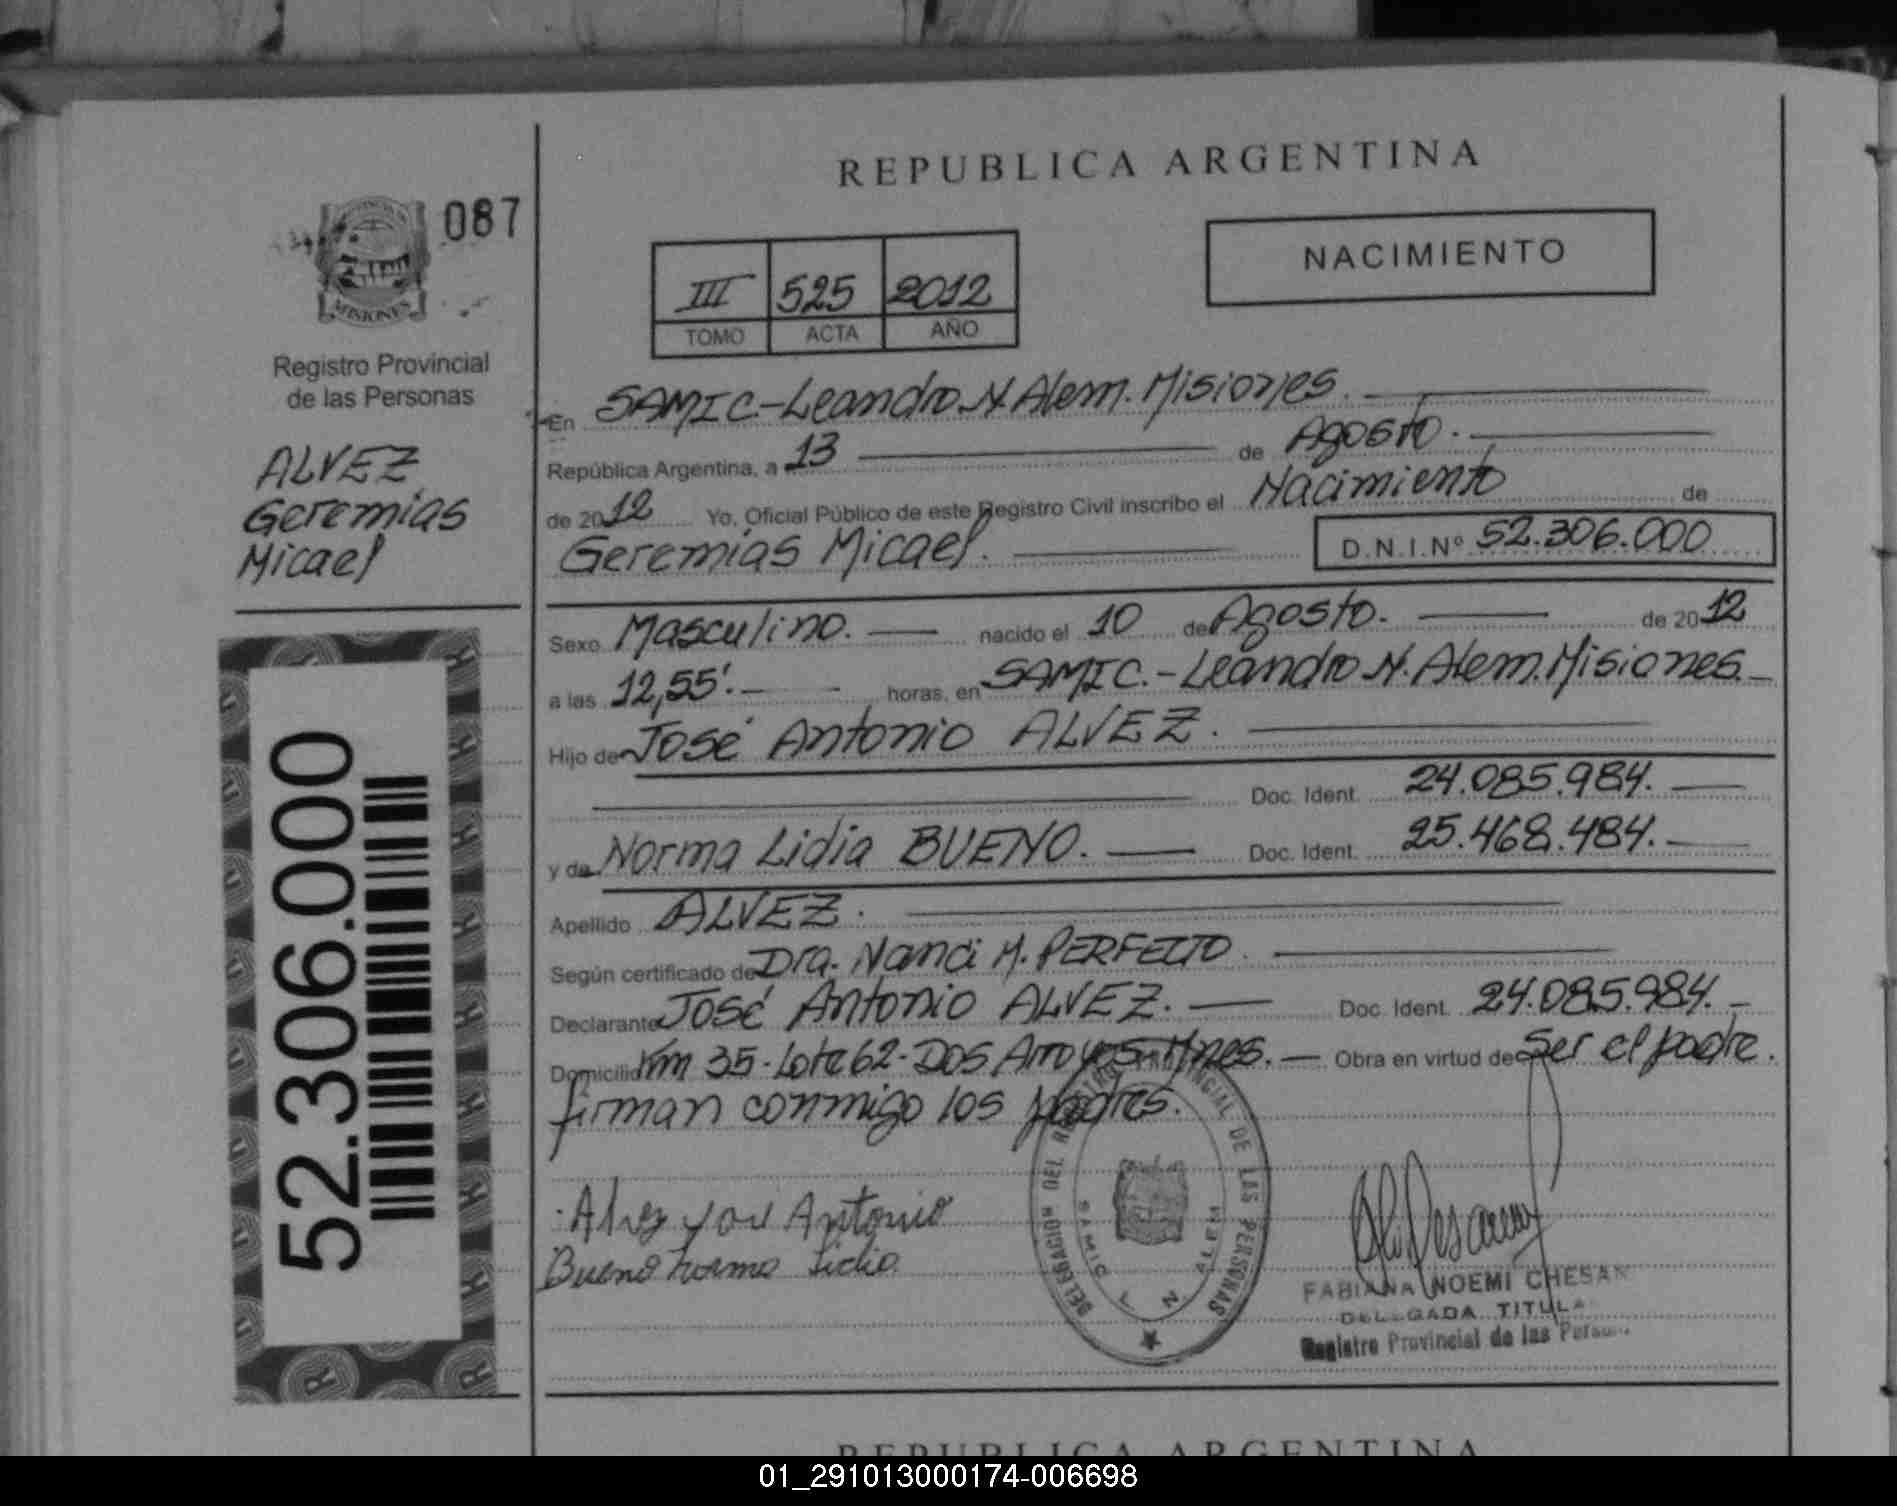 REPUBLICA ARGENTINA
087
MISIONES
Registro Provincial
de las Personas
ALVEZ
Geremias
Micael
52.306.000
III 525 2012
TOMO ACTA AÑO
NACIMIENTO
En SAMIC-Leandro N. Alem. Misiones.
República Argentina, a 13 de Agosto.
de 2012 Yo, Oficial Público de este Registro Civil inscribo el Nacimiento de
Geremias Micael. D.N.I.Nº 52.306.000
Sexo Masculino. nacido el 10 de Agosto. de 2012
a las 12,55'. horas, en SAMIC.-Leandro N. Alem. Misiones.
Hijo de José Antonio ALVEZ.
Doc. Ident. 24.085.984.
y de Norma Lidia BUENO. Doc. Ident. 25.468.484.
Apellido ALVEZ.
Según certificado de Dra. Nanci M. PERFETTO.
Declarante José Antonio ALVEZ. Doc. Ident. 24.085.984.
Domicilio Km 35-Lote 62-Dos Arroyos Mnes. Obra en virtud de Ser el padre.
firman conmigo los padres.
Alvez Antonio
Bueno norma Lidia
DELEGACION DEL REGISTRO PROVINCIAL DE LAS PERSONAS
SAMIC L N ALEM
FABIANA NOEMI CHESAN
DELEGADA TITULA
Registro Provincial de las Person
REPUBLICA ARGENTINA
01_291013000174-006698